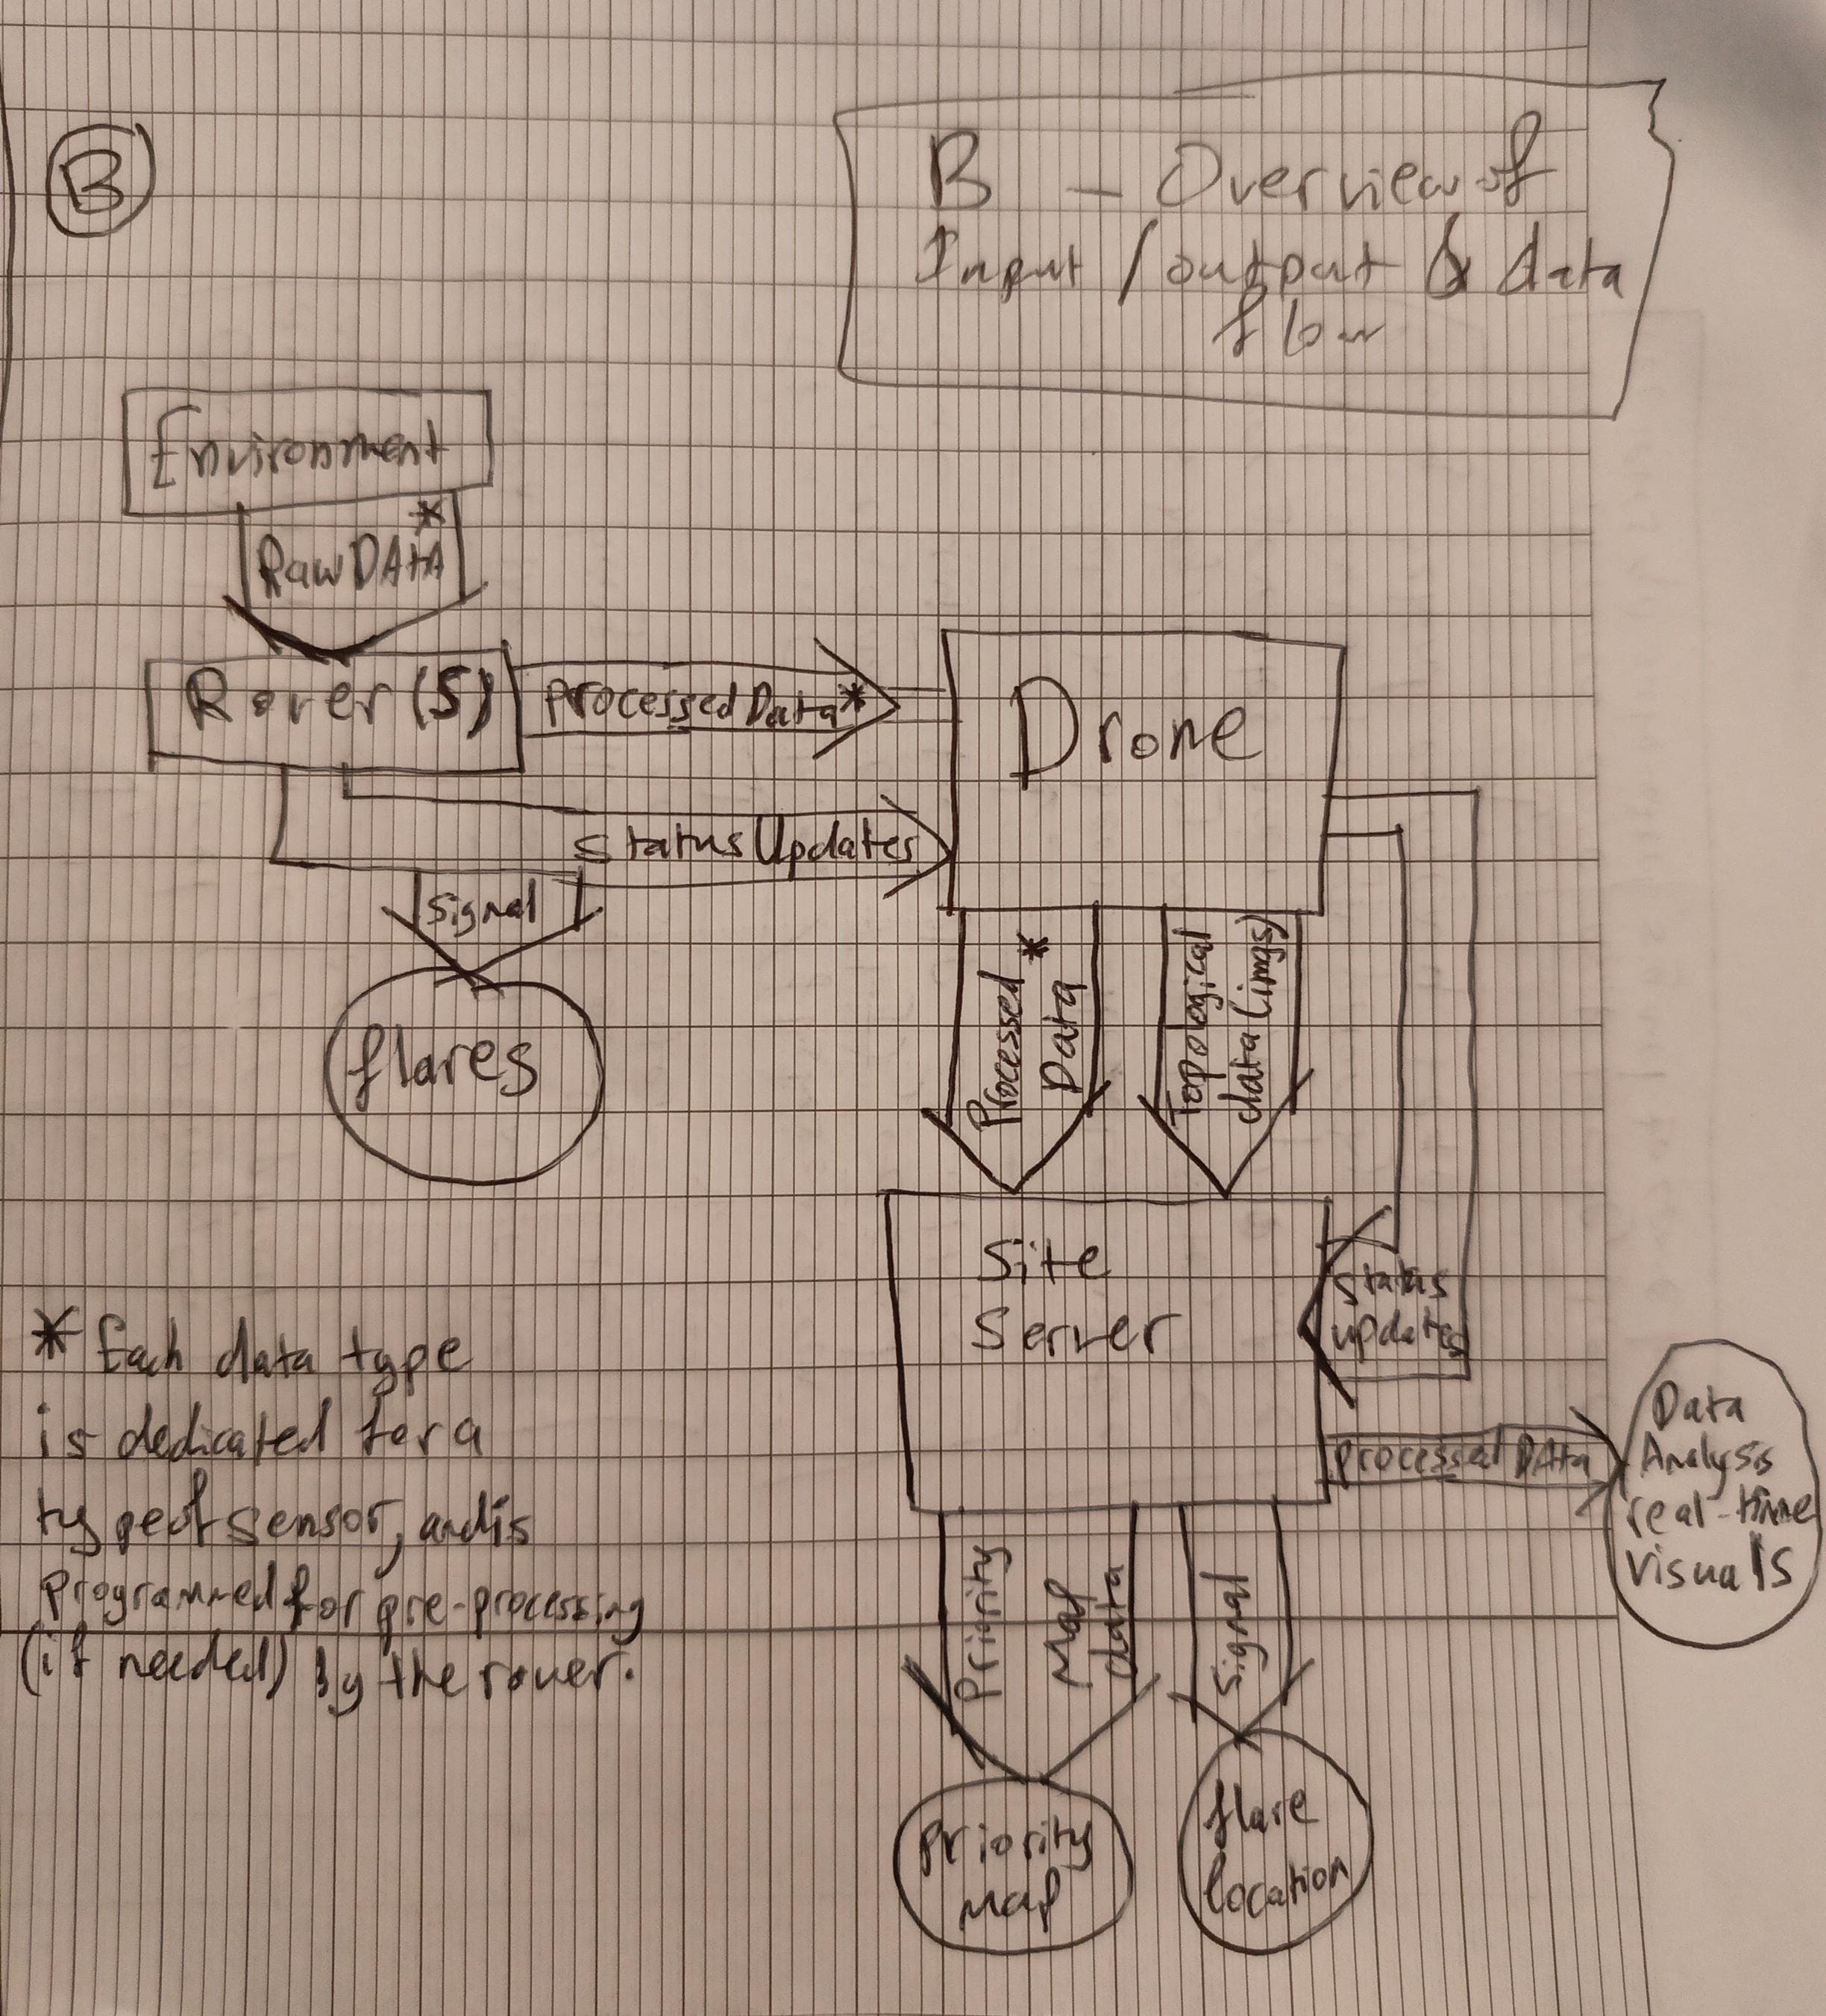 B
B - Overview of
Input / output & data
flow
Environment
*
Raw DAtA
Rover(S)
Processed Data*
Drone
Status Updates
Signal
flares
Processed *
Data
Topological
data (imgs)
Site
Server
Status
updates
Processed DAta
Data
Analysis
real-time
visuals
Priority
Map
data
Signal
Priority
map
flare
location
* Each data type
is dedicated for a
type of sensor, and is
programmed for pre-processing
(if needed) by the rover.